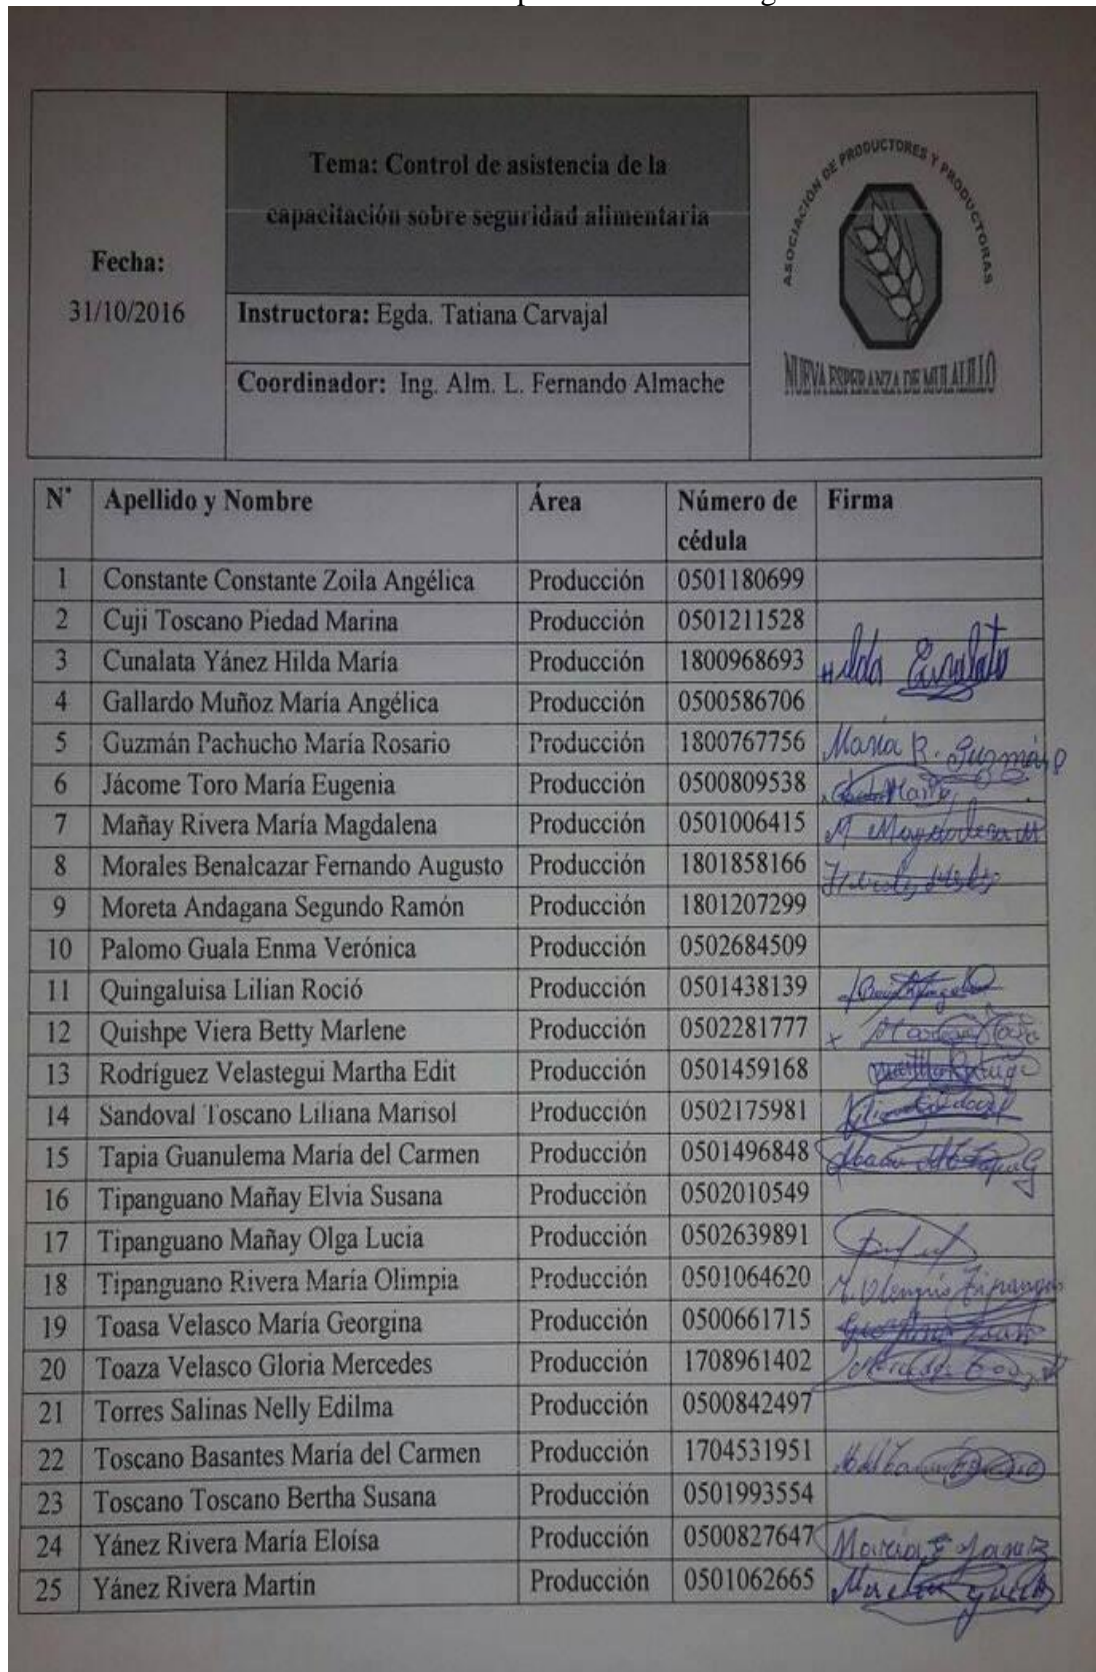 Fecha:
31/10/2016
Tema: Control de asistencia de la
capacitación sobre seguridad alimentaria
Instructora: Egda. Tatiana Carvajal
Coordinador: Ing. Alm. L. Fernando Almache
ASOCIACIÓN DE PRODUCTORES Y PRODUCTORAS
NUEVA ESPERANZA DE MULALILLO
N° Apellido y Nombre Área Número de cédula Firma
1 Constante Constante Zoila Angélica Producción 0501180699
2 Cuji Toscano Piedad Marina Producción 0501211528
3 Cunalata Yánez Hilda María Producción 1800968693 Hilda Cunalata
4 Gallardo Muñoz María Angélica Producción 0500586706
5 Guzmán Pachucho María Rosario Producción 1800767756 María R. Guzmán P
6 Jácome Toro María Eugenia Producción 0500809538
7 Mañay Rivera María Magdalena Producción 0501006415 M Magdalena M
8 Morales Benalcazar Fernando Augusto Producción 1801858166
9 Moreta Andagana Segundo Ramón Producción 1801207299
10 Palomo Guala Enma Verónica Producción 0502684509
11 Quingaluisa Lilian Roció Producción 0501438139
12 Quishpe Viera Betty Marlene Producción 0502281777
13 Rodríguez Velastegui Martha Edit Producción 0501459168
14 Sandoval Toscano Liliana Marisol Producción 0502175981
15 Tapia Guanulema María del Carmen Producción 0501496848
16 Tipanguano Mañay Elvia Susana Producción 0502010549
17 Tipanguano Mañay Olga Lucía Producción 0502639891
18 Tipanguano Rivera María Olimpia Producción 0501064620
19 Toasa Velasco María Georgina Producción 0500661715
20 Toaza Velasco Gloria Mercedes Producción 1708961402
21 Torres Salinas Nelly Edilma Producción 0500842497
22 Toscano Basantes María del Carmen Producción 1704531951
23 Toscano Toscano Bertha Susana Producción 0501993554
24 Yánez Rivera María Eloísa Producción 0500827647 María E Yanez
25 Yánez Rivera Martin Producción 0501062665